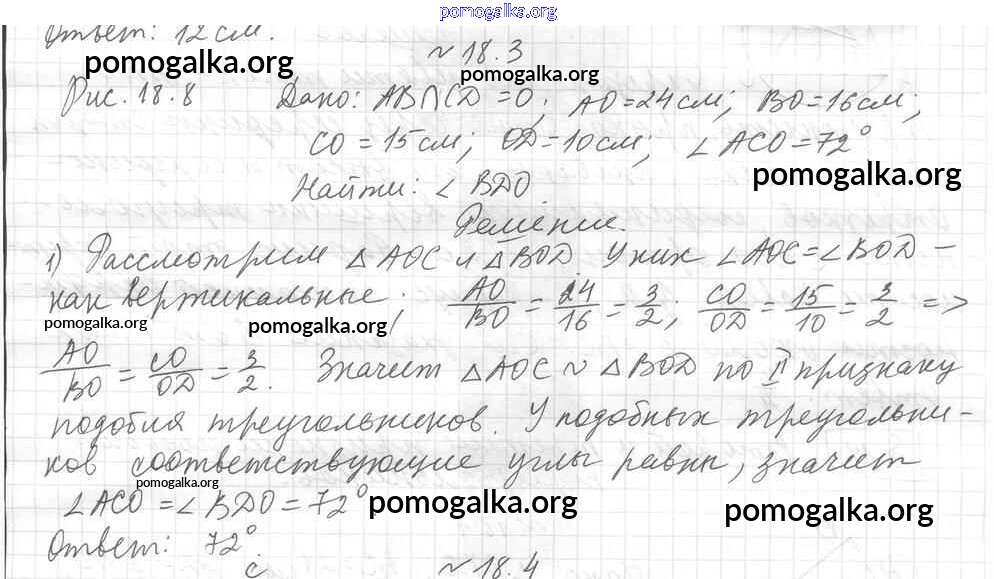 pomogalka.org
Ответ: 12 см.
№ 18.3
pomogalka.org pomogalka.org
Рис. 18.8 Дано: AB∩CD = O; AO = 24 см; BO = 16 см;
CO = 15 см; OD = 10 см; ∠ ACO = 72°
pomogalka.org
Найти: ∠ BDO
Решение.
1) Рассмотрим △ AOC и △ BOD. У них ∠ AOC = ∠ BOD –
как вертикальные; AO/BO = 24/16 = 3/2; CO/OD = 15/10 = 3/2 =>
pomogalka.org pomogalka.org
AO/BO = CO/OD = 3/2. Значит △ AOC ~ △ BOD по II признаку
подобия треугольников. У подобных треугольни-
ков соответствующие углы равны, значит
pomogalka.org
∠ ACO = ∠ BDO = 72° pomogalka.org pomogalka.org
Ответ: 72°.
№ 18.4